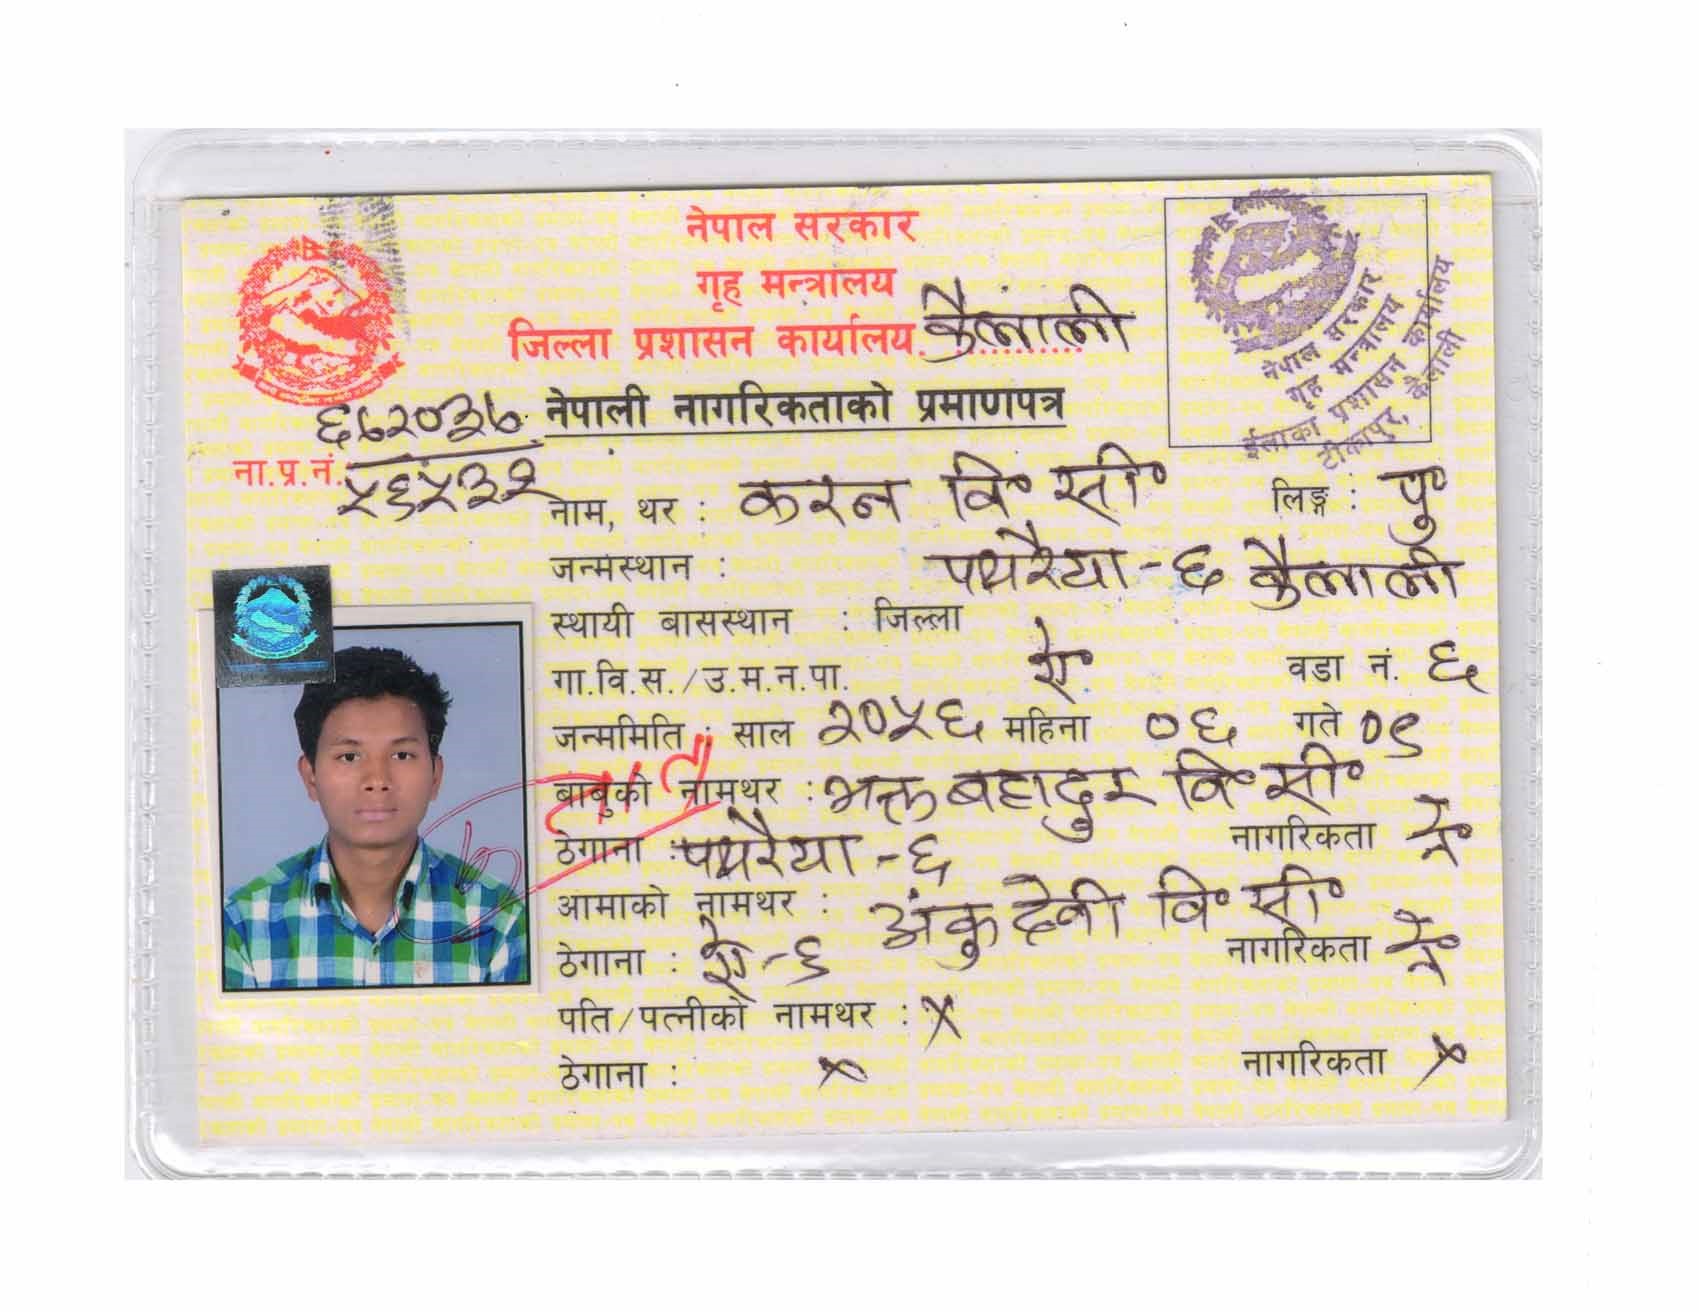 नेपाल सरकार
गृह मन्त्रालय
जिल्ला प्रशासन कार्यालय कैलाली
नेपाल सरकार
गृह मन्त्रालय
ईलाका प्रशासन कार्यालय
टीकापुर, कैलाली
नेपाली नागरिकताको प्रमाणपत्र
ना.प्र.नं.
५६५३२
नाम, थर : करन वि॰ सी॰ लिङ्ग : पु॰
जन्मस्थान : पथरैया-६ कैलाली
स्थायी बासस्थान : जिल्ला
गा.वि.स./उ.म.न.पा. ऐ॰ वडा नं. ६
जन्ममिति : साल २०५६ महिना ०६ गते ०९
बाबुको नामथर : भक्त बहादुर वि॰ सी॰
ठेगाना : पथरैया-६ नागरिकता ने॰
आमाको नामथर : अंकु देवी वि॰ सी॰
ठेगाना : ऐ॰-६ नागरिकता ने॰
पति/पत्नीको नामथर : x
ठेगाना : x नागरिकता x